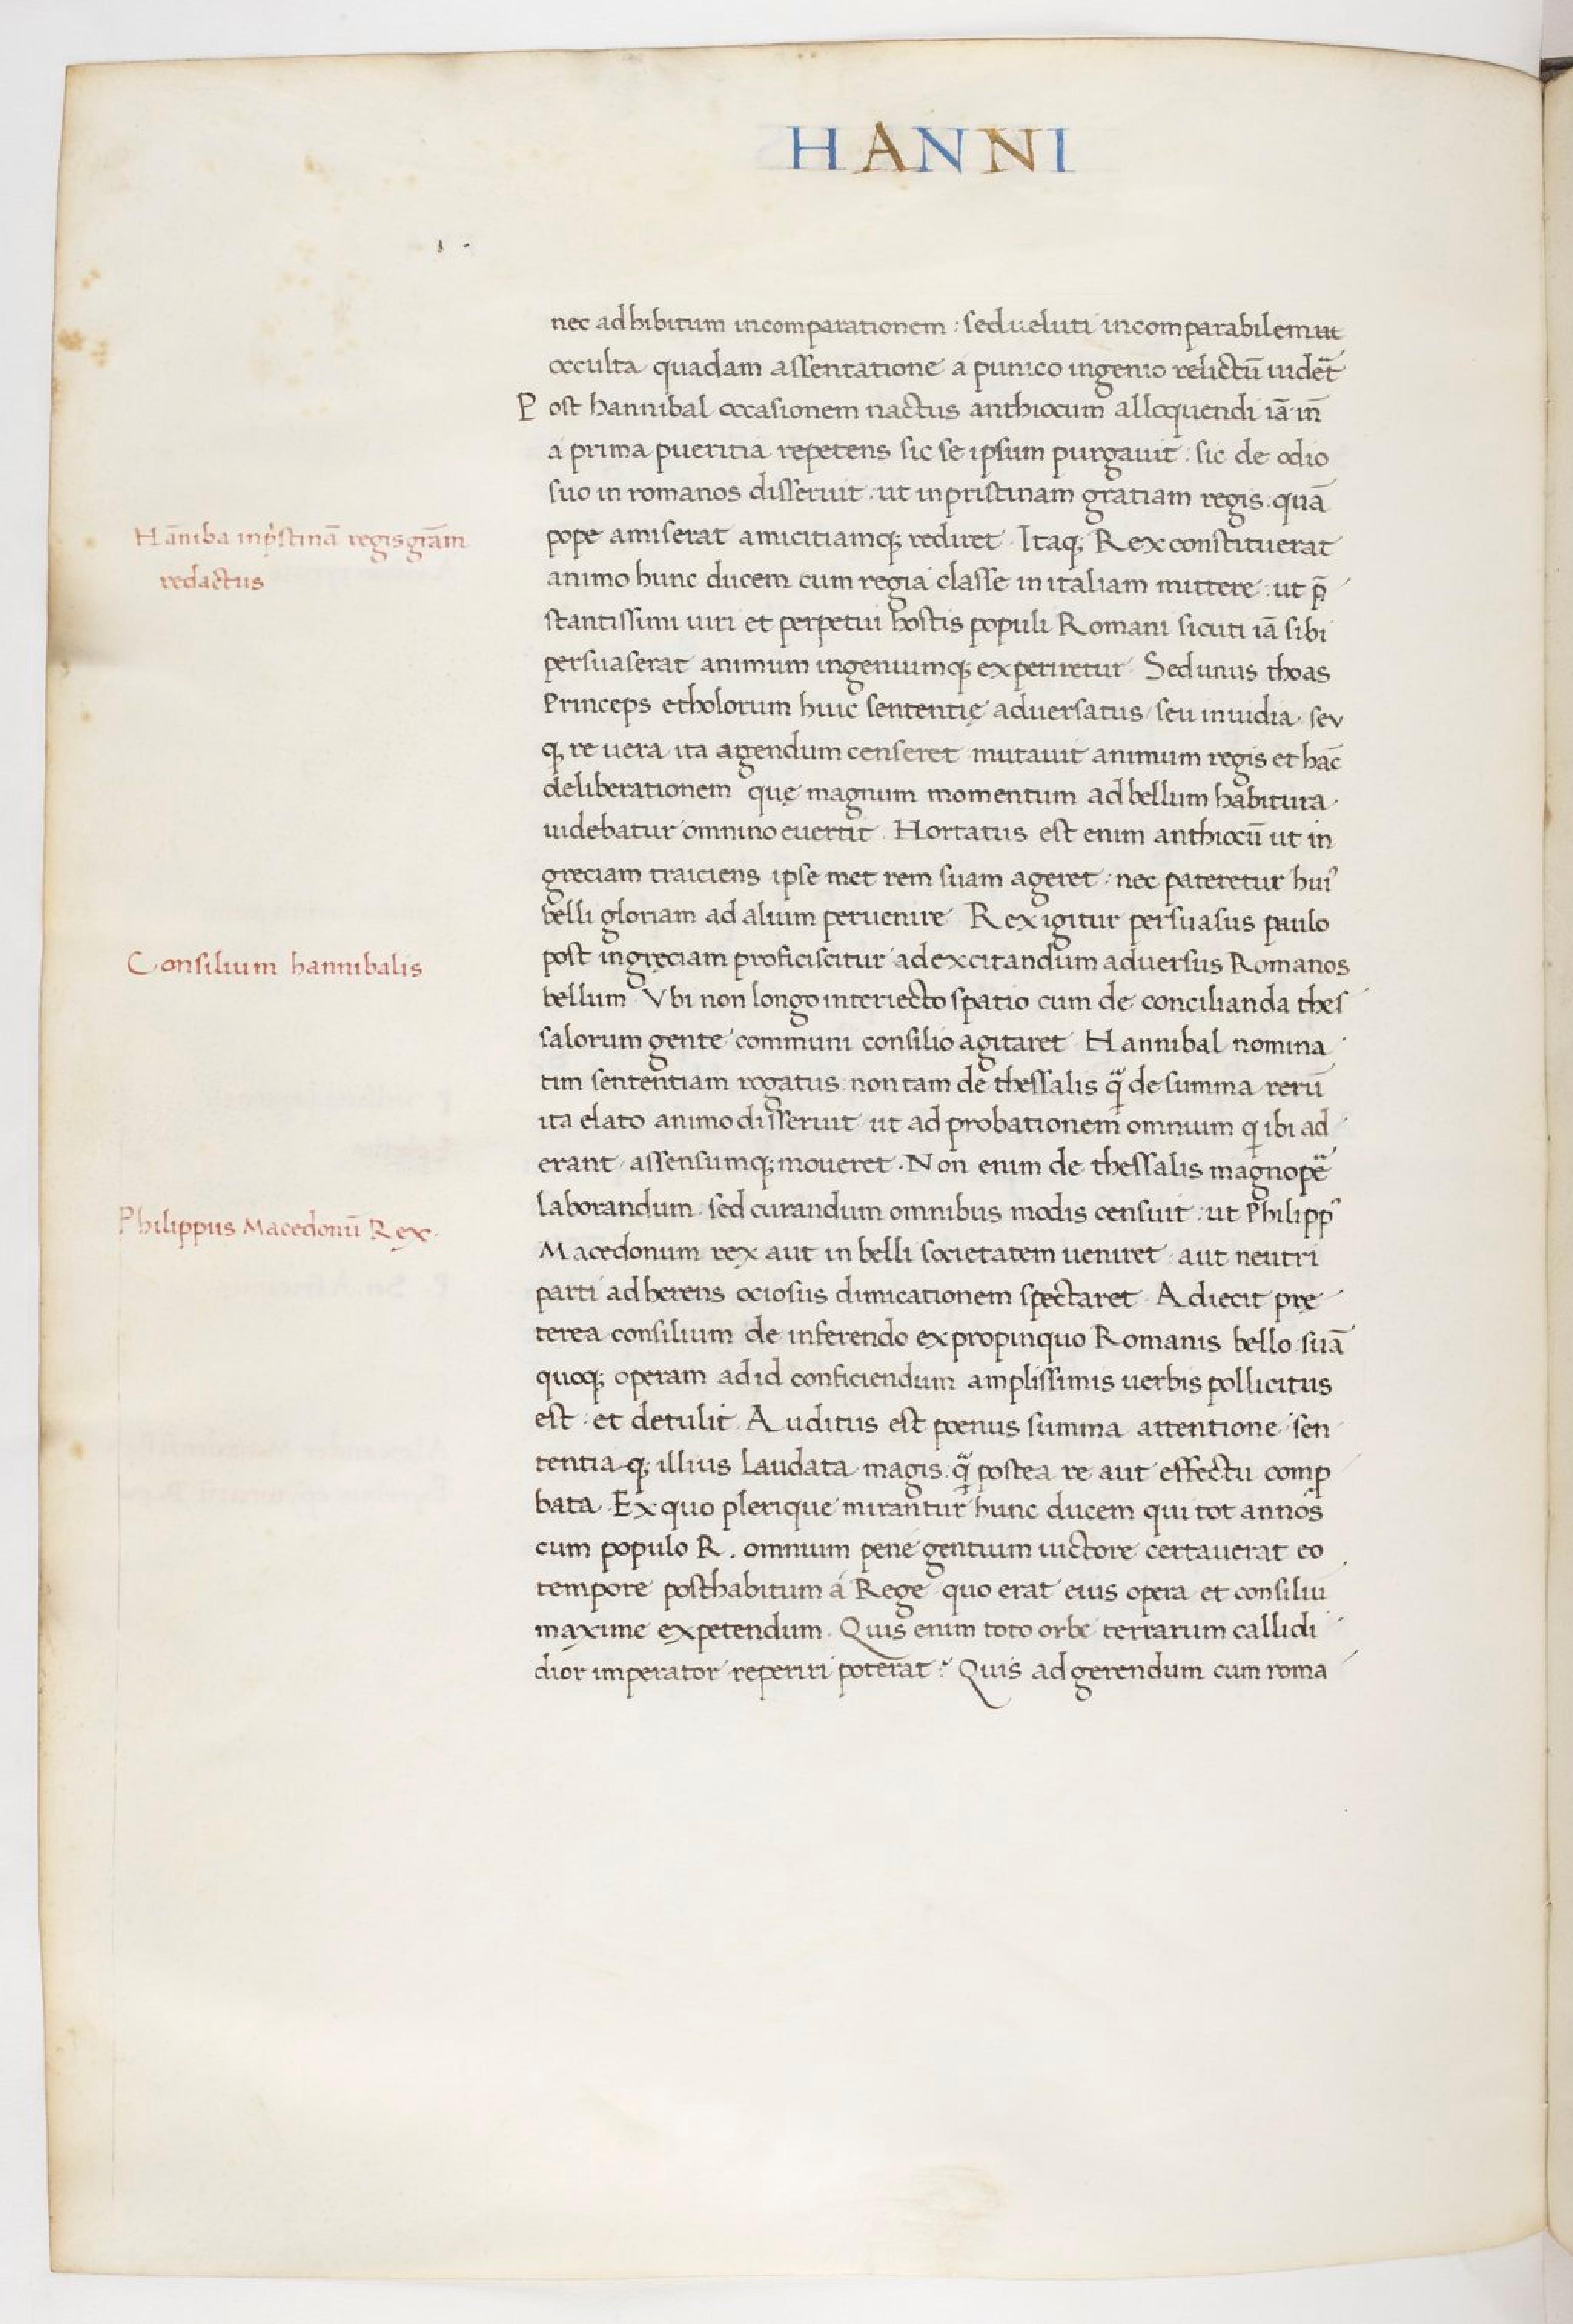 HANNI
nec adhibitum incomparationem : sed ueluti incomparabilem ut
occulta quadam assentatione a punico ingenio relictū uidēt
Post hannibal occasionem nactus anthiocum alloquendi iā in
a prima pueritia repetens sic se ipsum purgauit : sic de odio
suo in romanos disseruit : ut in pristinam gratiam regis quā
Hāniba in pristinā regis grām
redactus
pope amiserat amicitiamq; rediret . Itaq; Rex constituerat
animo hunc ducem cum regia classe in italiam mittere : ut p̄
stantissimi uiri et perpetui hostis populi Romani sicuti iā sibi
persuaserat animum ingeniumq; experiretur . Sed unus thoas
Princeps etholorum huic sententię aduersatus / seu inuidia . seu
q re uera ita agendum censeret mutauit animum regis et hāc
deliberationem quę magnum momentum ad bellum habitura
uidebatur omnino euertit . Hortatus est enim anthiocū ut in
greciam traiciens ipse met rem suam ageret : nec pateretur hui9
belli gloriam ad alium peruenire Rex igitur persuasus paulo
Consilium hannibalis
post in gręciam proficiscitur ad excitandum aduersus Romanos
bellum . Vbi non longo interiecto spatio cum de concilianda thes
salorum gente communi consilio agitaret Hannibal nomina
tim sententiam rogatus non tam de thessalis q̄ de summa rerū
ita elato animo disseruit ut ad probationem omnium q ibi ad
erant assensumq; moueret . Non enim de thessalis magnopē
laborandum . sed curandum omnibus modis censuit : ut Philipp9
Philippus Macedonū Rex .
Macedonum rex aut in belli societatem ueniret aut neutri
parti adherens ociosus dimicationem spectaret . Adiecit prę
terea consilium de inferendo ex propinquo Romanis bello suā
quoq; operam ad id conficiendum amplissimis uerbis pollicitus
est : et detulit . Auditus est poenus summa attentione sen
tentia q; illius laudata magis q̄ postea re aut effectu comp
bata . Ex quo plerique mirantur hunc ducem qui tot annos
cum populo R . omnium pene gentium uictore certauerat eo
tempore posthabitum á Rege quo erat eius opera et consiliu
maxime expetendum . Quis enim toto orbe terrarum callidi
dior imperator reperiri poterat ? Quis ad gerendum cum roma